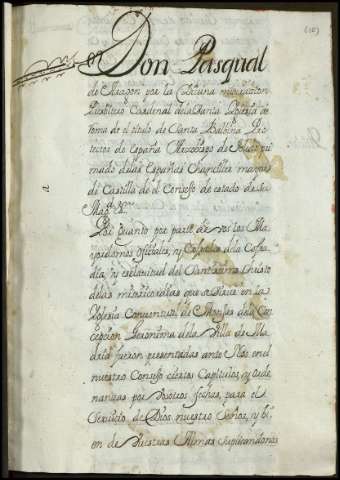 Don Pasqual
de Aragon por la Divina miseracion
Presbitero Cardenal de la Santa Yglesia de
Roma de el titulo de Santa Balbina Pro
tector de España Arzobispo de Toledo pri
mado de las Españas Chanciller mayor
de Castilla de el Consejo de estado de su
Magd. &c.
Por quanto por parte de vos los Ma
yordomos oficiales, y Cofrades de la Cofra
dia, y esclavitud del Santissimo Christo
de las misericordias que se sirve en la
Yglesia Conventual de Monjas de la Con
cepcion Geronima de la Villa de Ma
drid fueron presentadas ante Nos en el
nuestro Consejo ciertos Capitulos, y orde
nanzas por vosotros fechas, para el
Servicio de Dios nuestro Señor, y bi
en de vuestras Almas suplicandonos